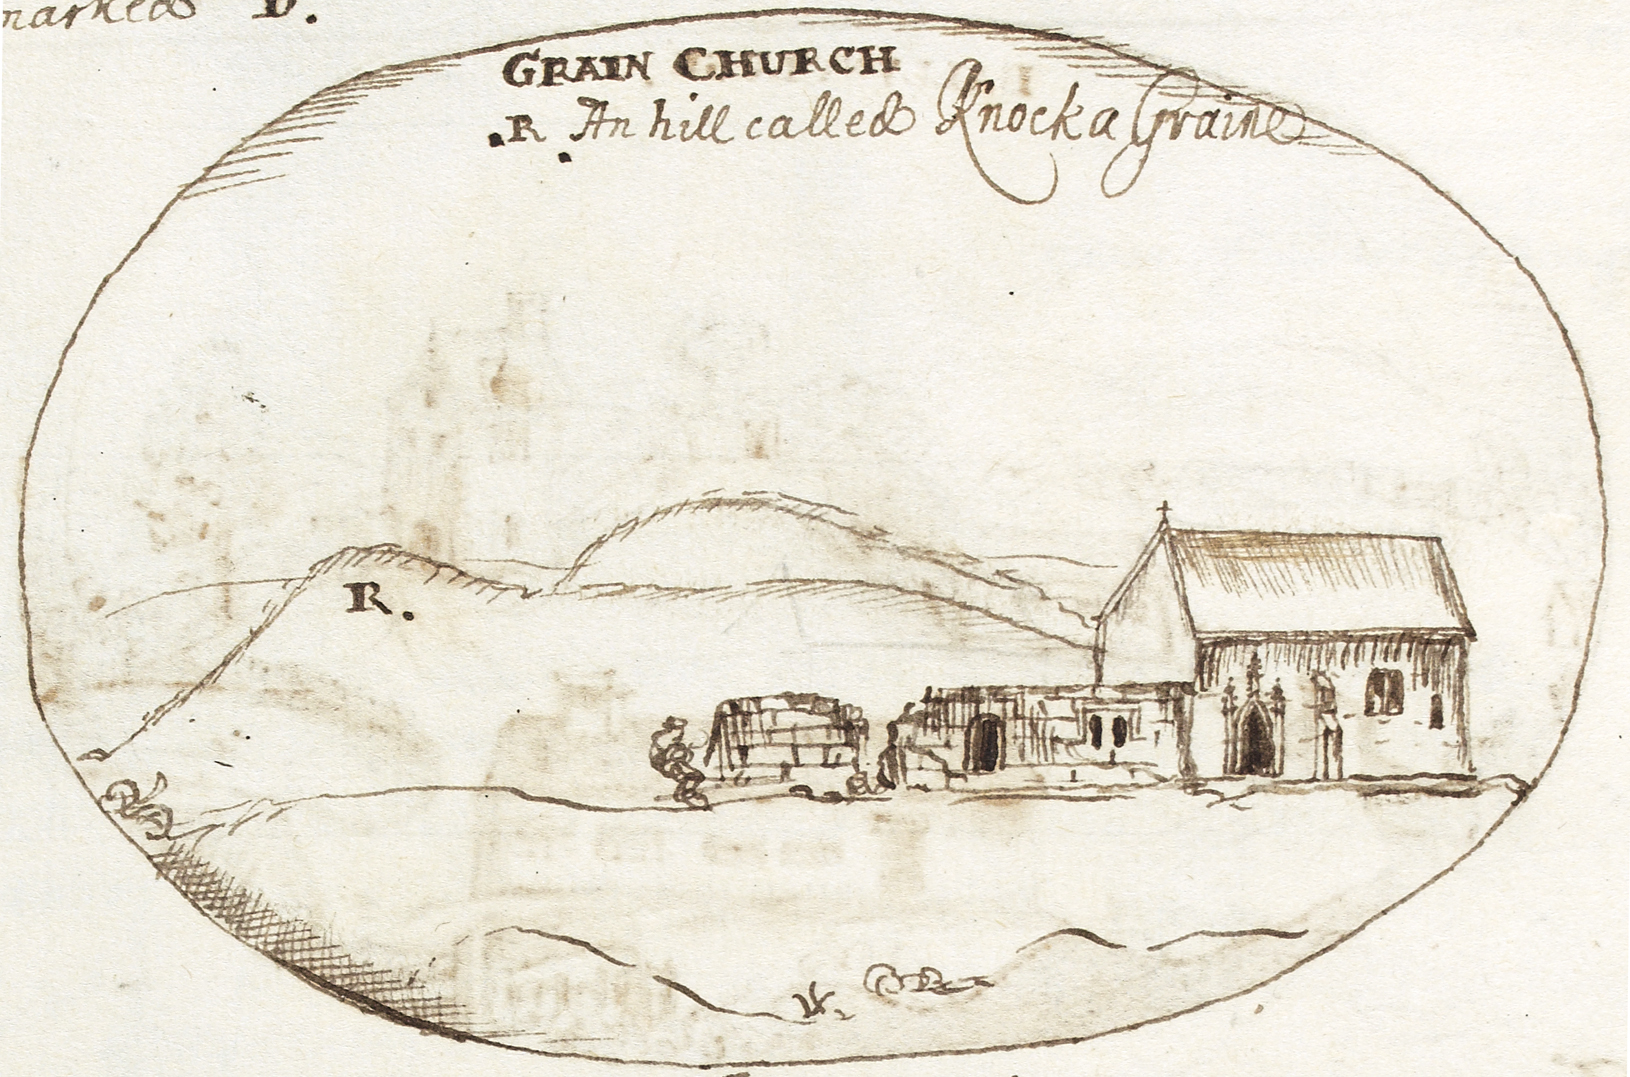 marked D.
GRAIN CHURCH
.R. An hill called Knock a Graine
R.